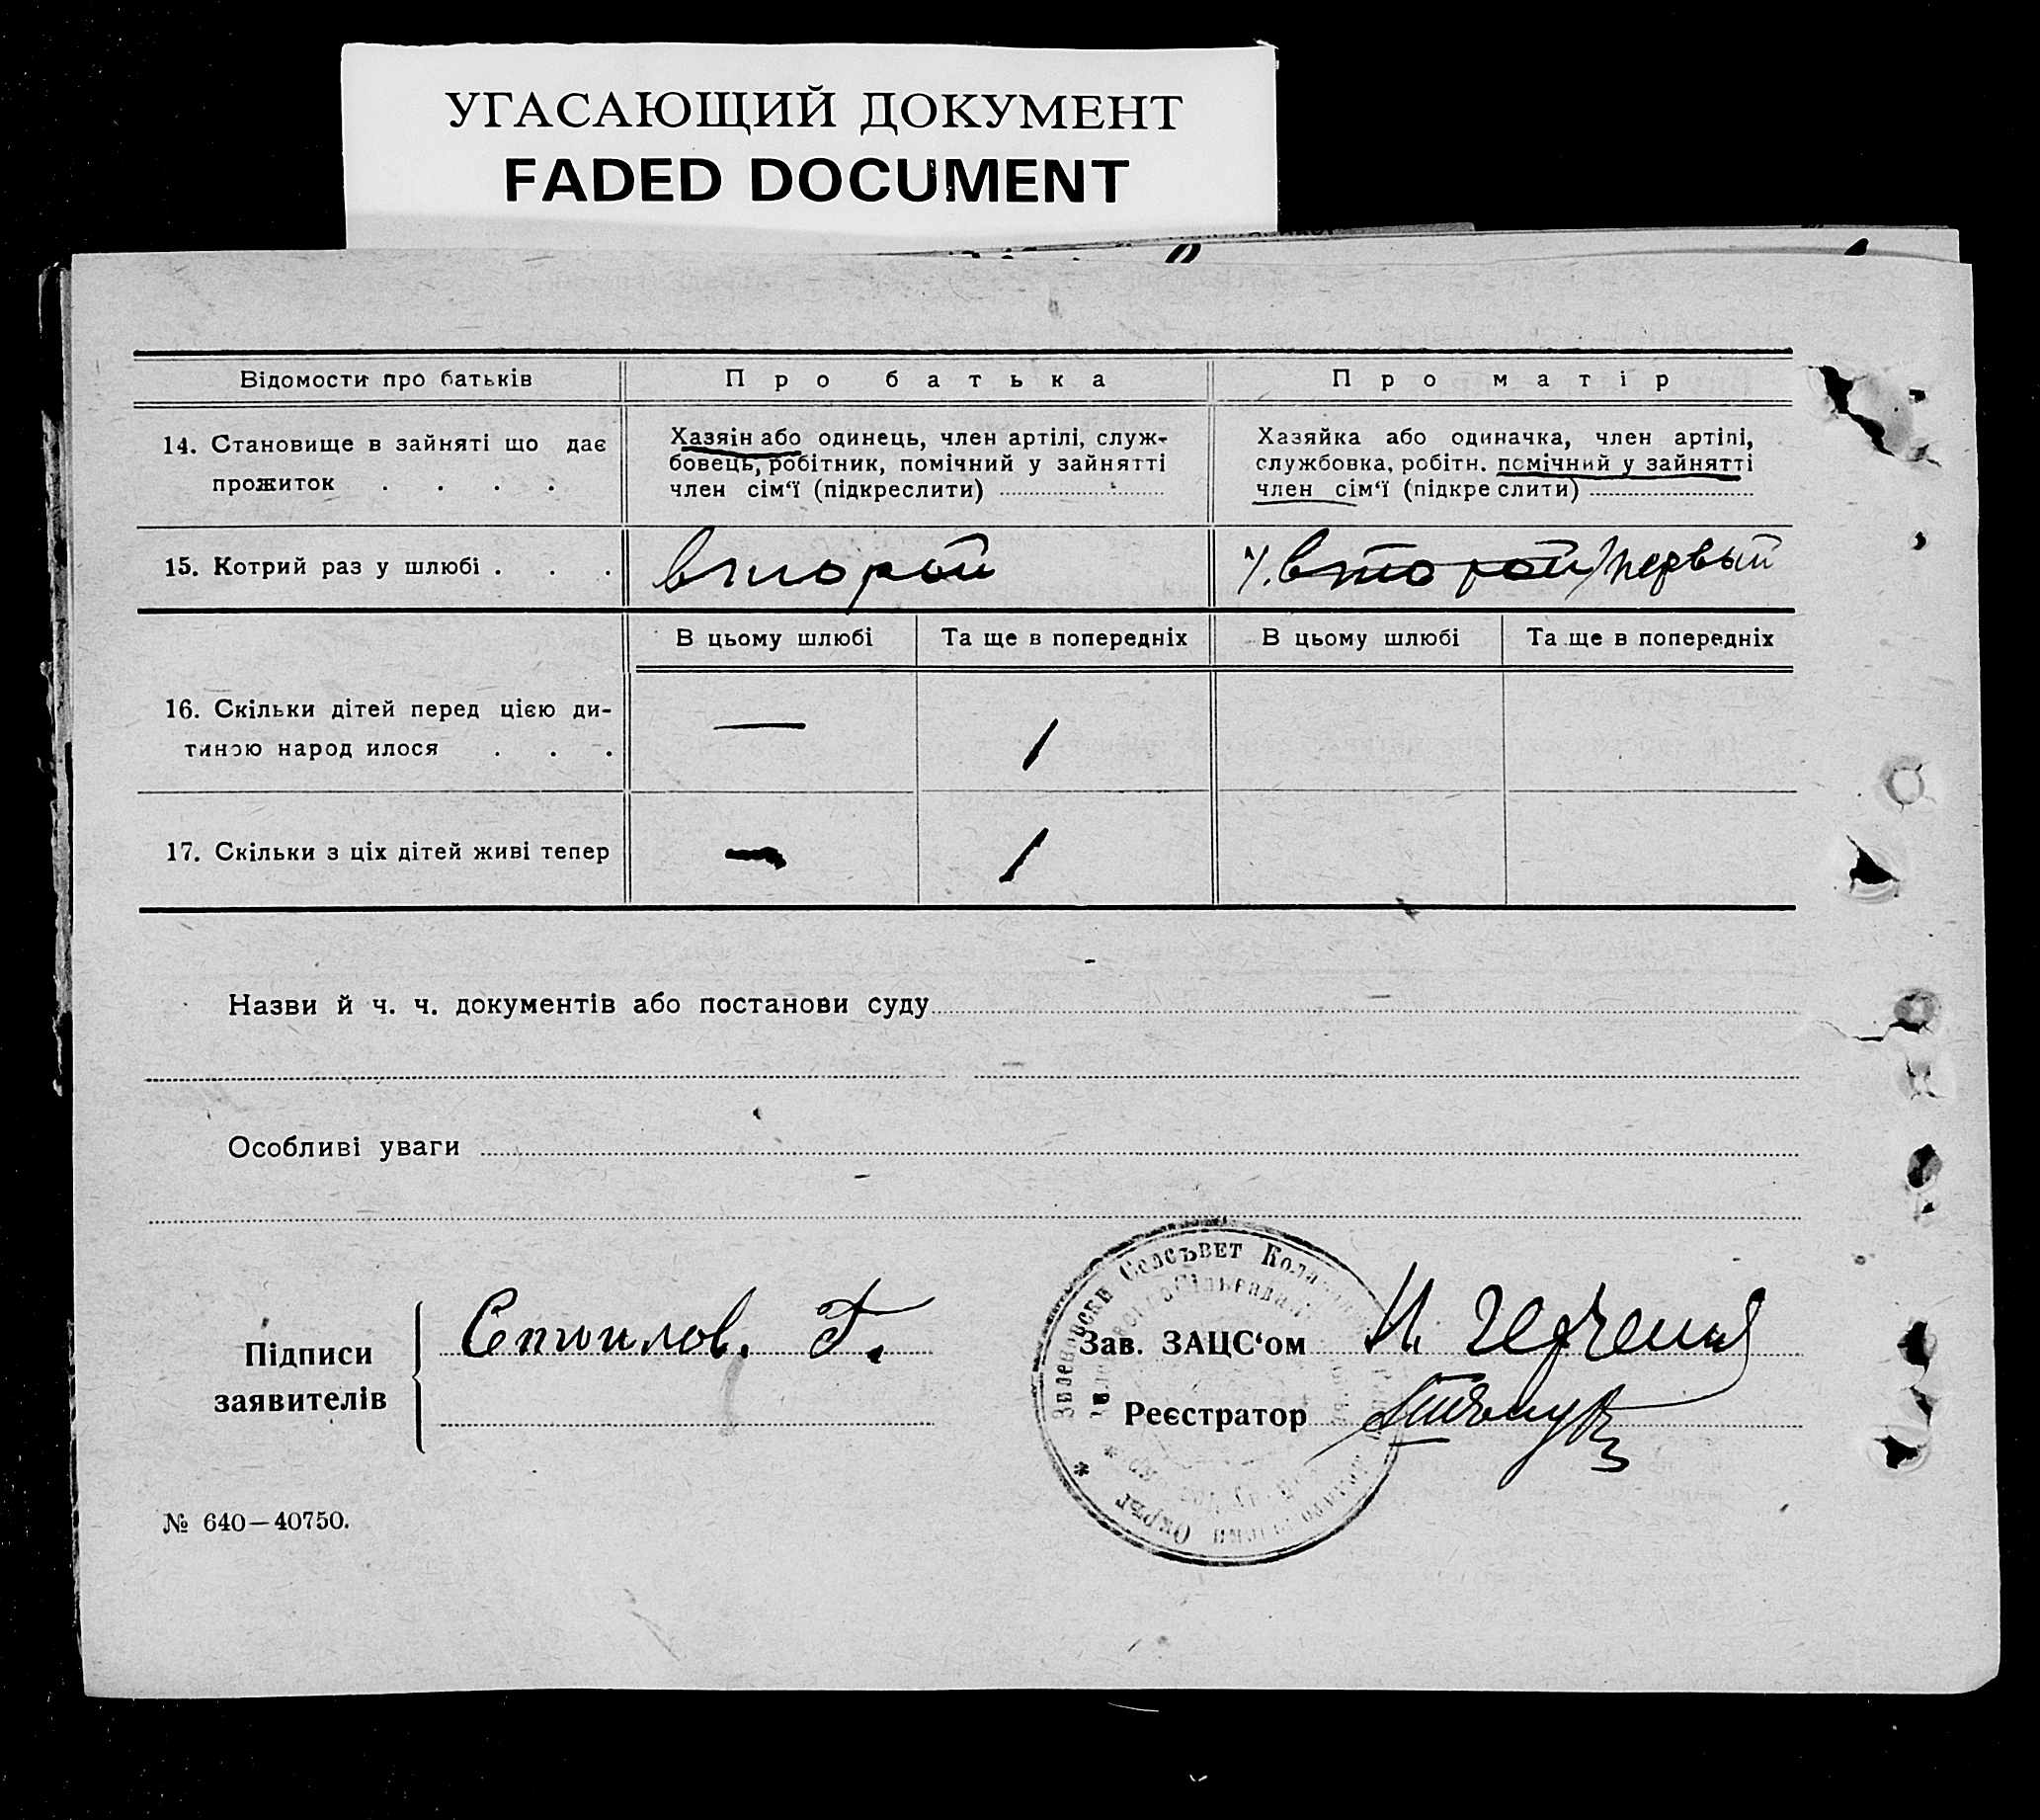 УГАСАЮЩИЙ ДОКУМЕНТ
FADED DOCUMENT
Відомости про батьків
Про батька
Про матір
14. Становище в зайняті що дає
прожиток . . . .
Хазяін або одинець, член артілі, служ-
бовець, робітник, помічний у зайнятті
член сім‘ї (підкреслити)
Хазяйка або одиначка, член артілі,
службовка, робітн. помічний у зайнятті
член сім‘ї (підкреслити)
15. Котрий раз у шлюбі . . .
второй
второй первый
В цьому шлюбі
Та ще в попередніх
В цьому шлюбі
Та ще в попередніх
16. Скільки дітей перед цією ди-
тиною народилося . . .
— 1
17. Скільки з ціх дітей живі тепер
— 1
Назви й ч. ч. документів або постанови суду
Особливі уваги
Підписи
заявителів
Г.
Зав. ЗАЦС‘ом
Реєстратор
Селсъвет
Окръг
№ 640—40750.